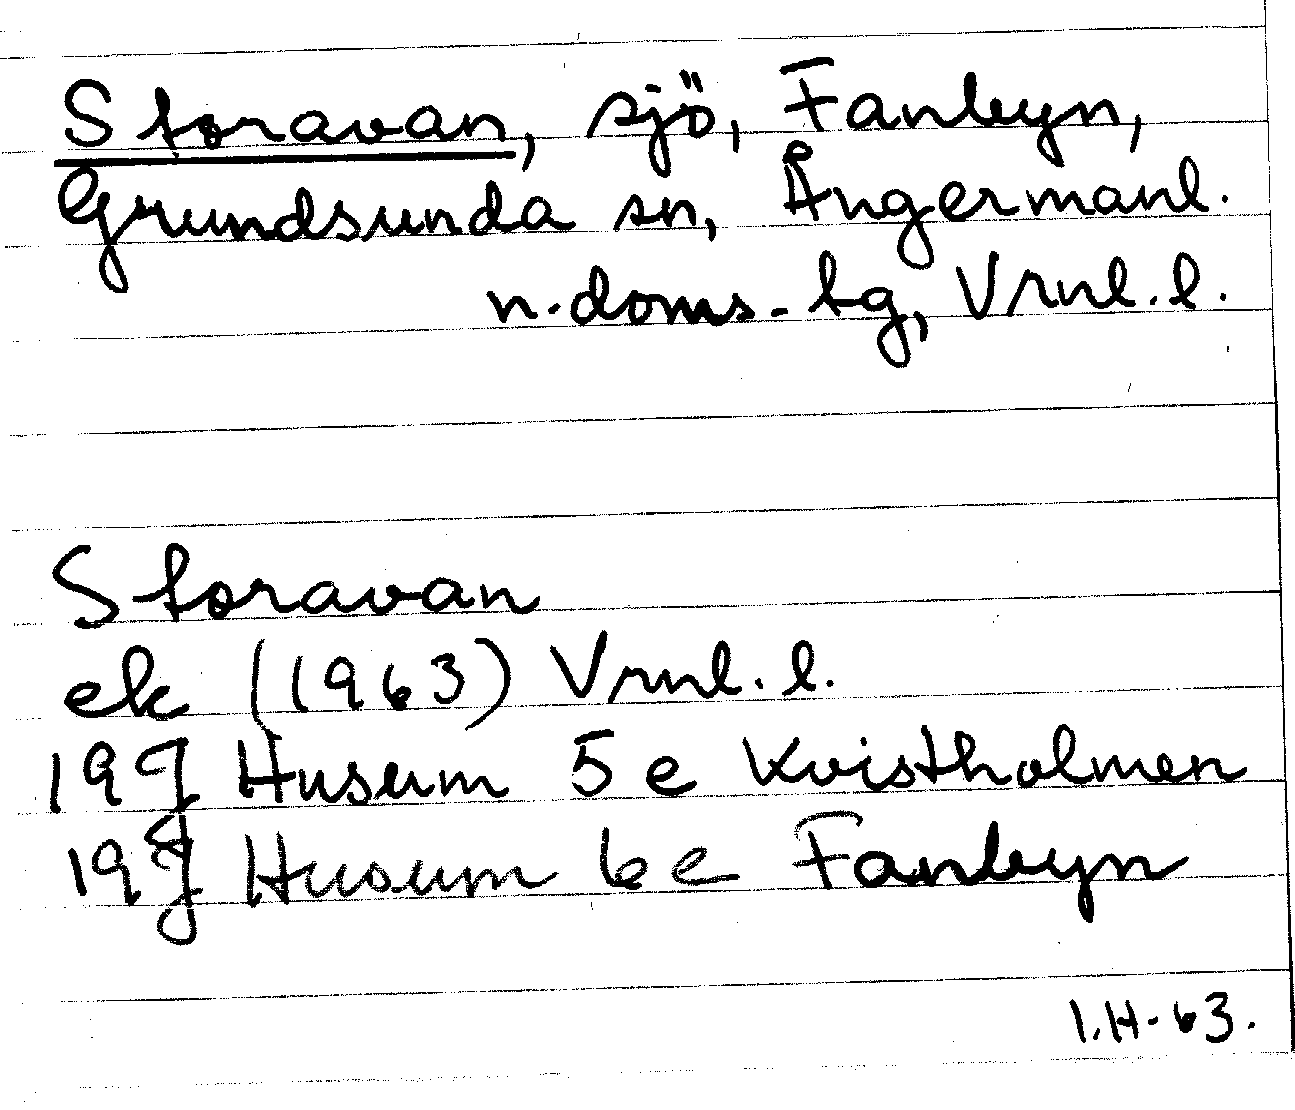 Storavan, sjö, Fanbyn,
Grundsunda sn, Ångermanl.
n. doms.-bg, Vrnl. l.
Storavan
ek (1963) Vrnl. l.
19J Husum 5e Kvistholmen
19J Husum 6e Fanbyn
I.H-63.